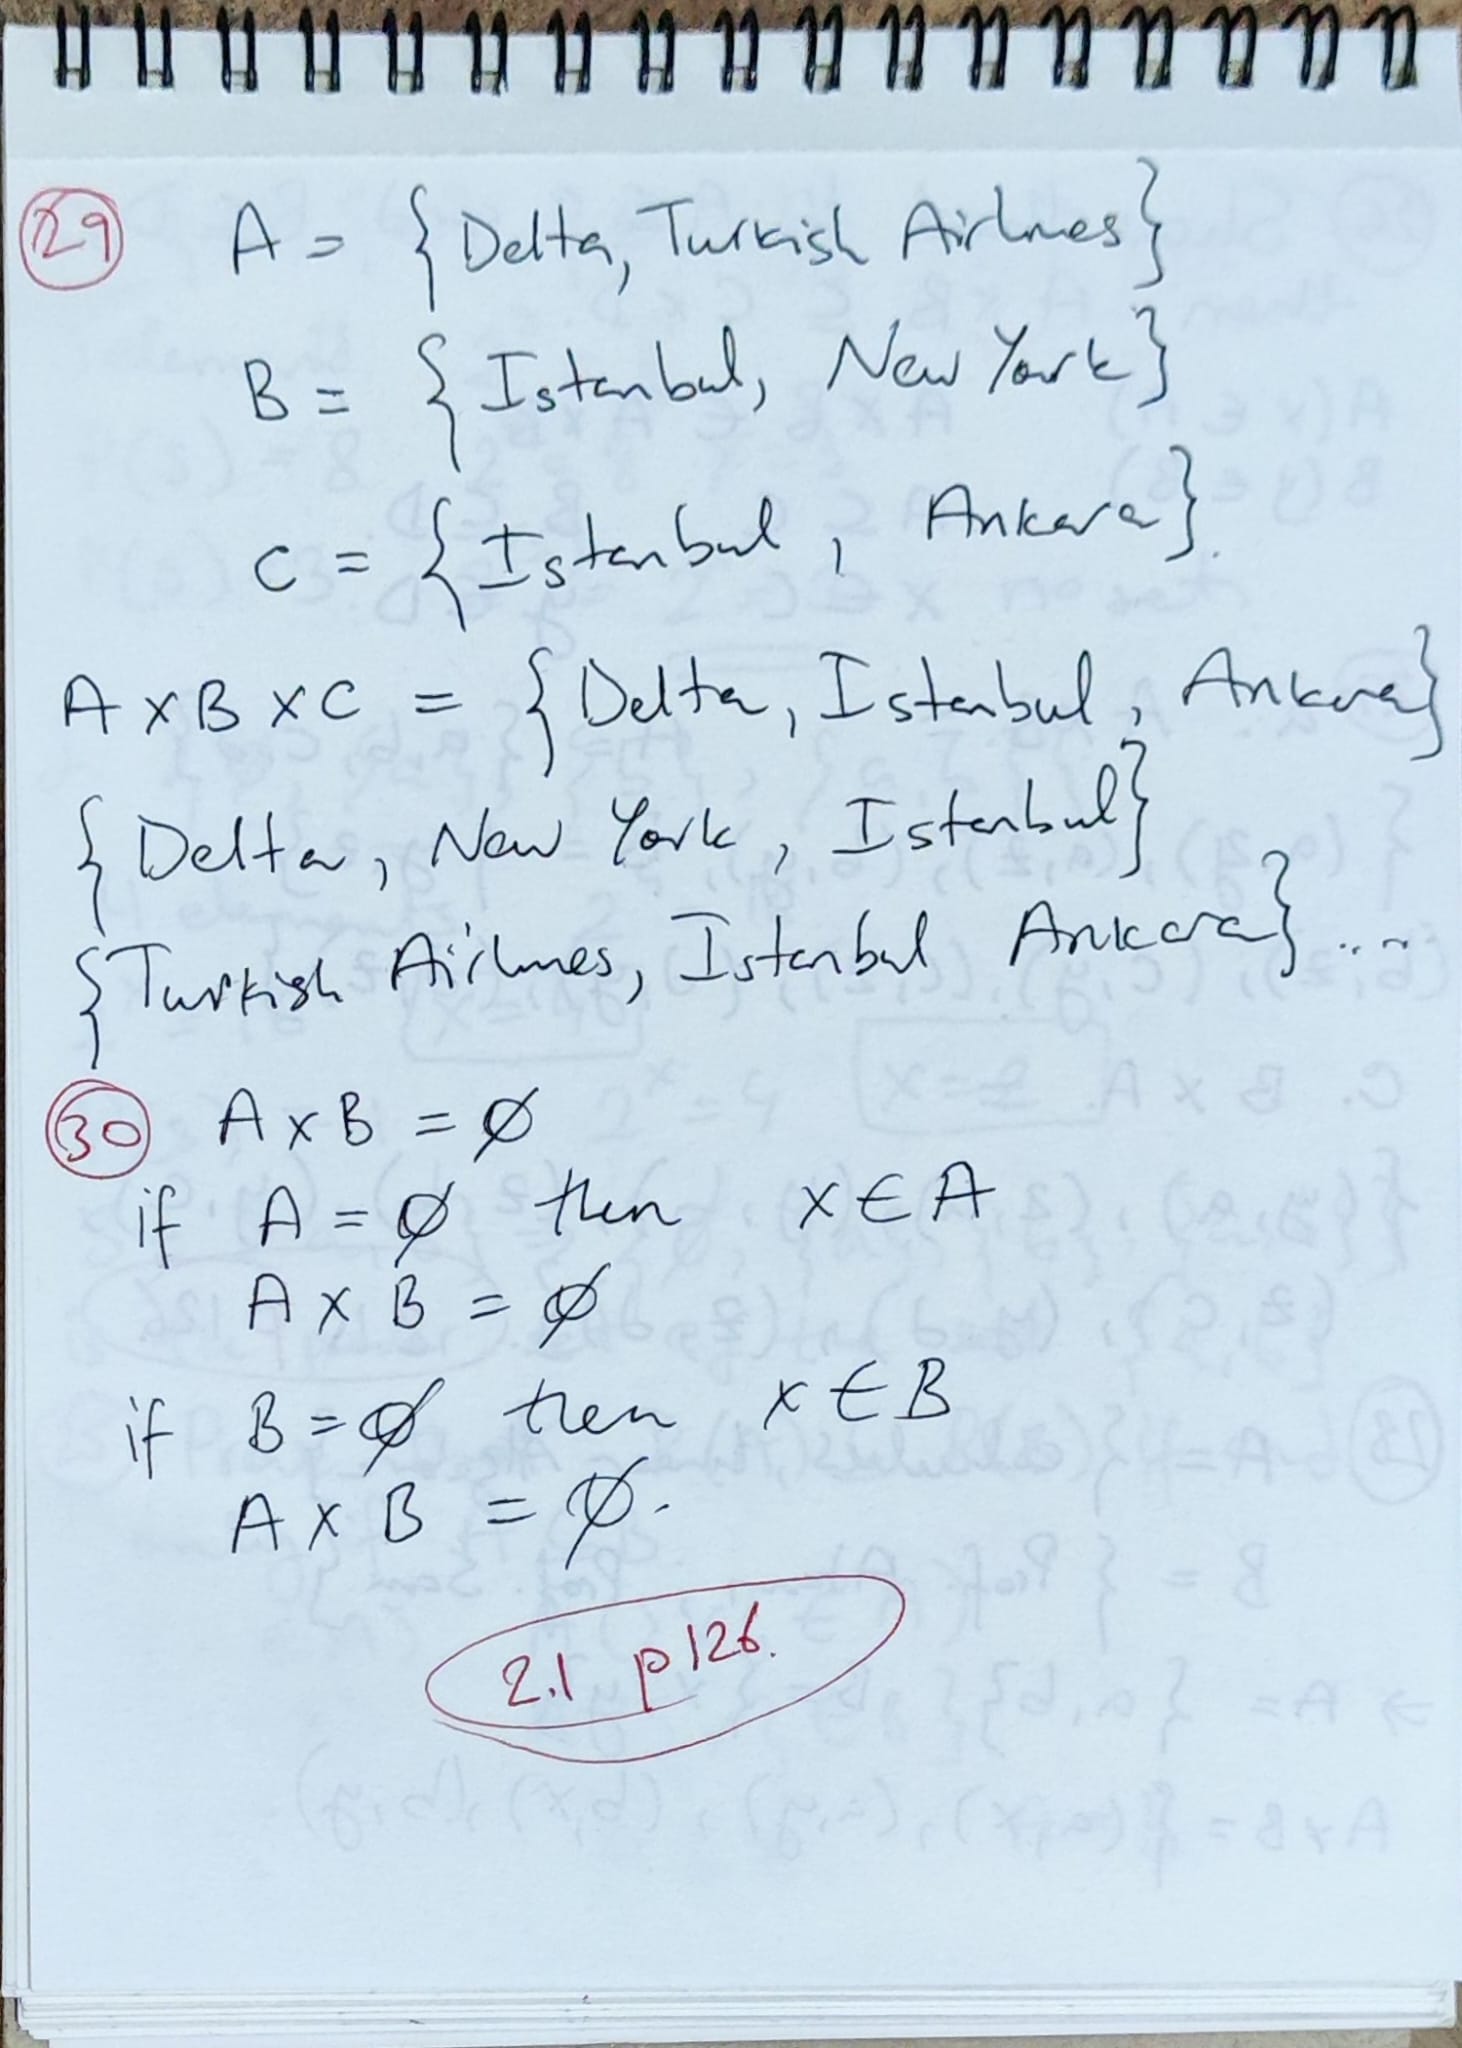 29 A = {Delta, Turkish Airlines}
B = {Istanbul, New York}
C = {Istanbul, Ankara}.
A x B x C = {Delta, Istanbul, Ankara}
{Delta, New York, Istanbul}
{Turkish Airlines, Istanbul Ankara} ...
30 A x B = ∅
if A = ∅ then x ∈ A
A x B = ∅
if B = ∅ then x ∈ B
A x B = ∅.
2.1 p126.